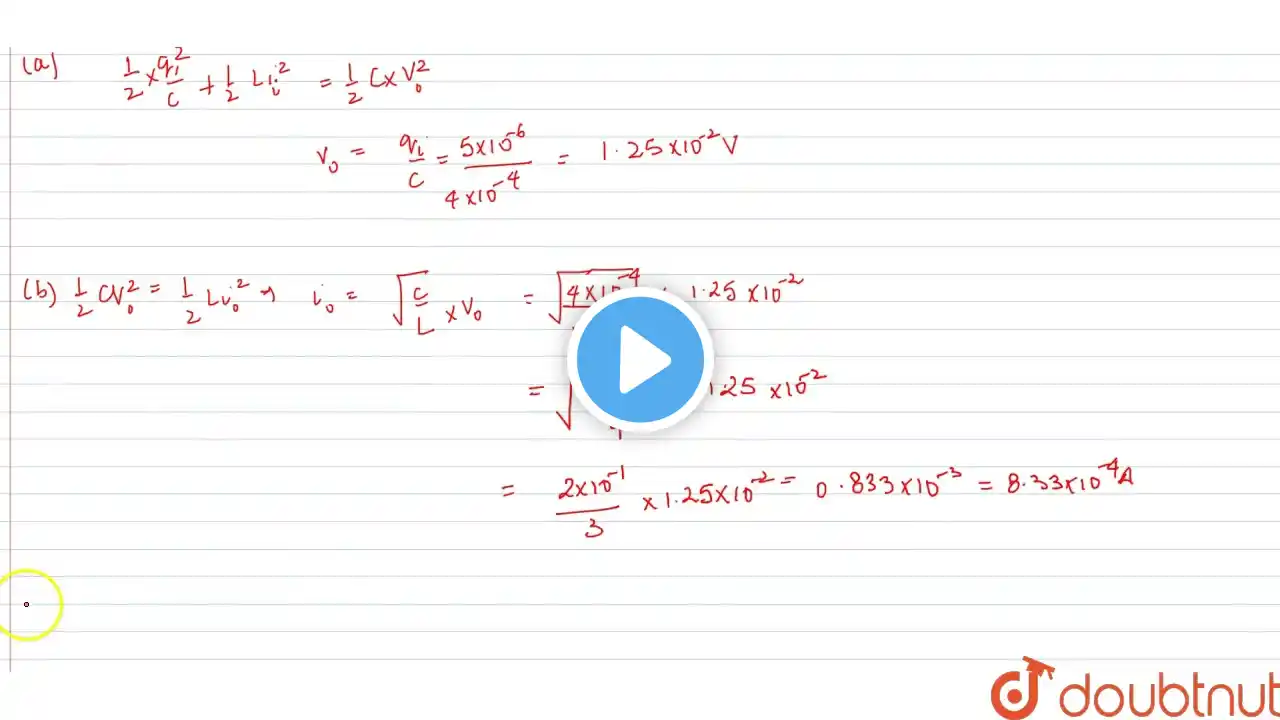 (a) 1/2 × qi²/C + 1/2 Li i² = 1/2 C × V0²
V0 = qi/C = 5×10⁻⁶/4×10⁻⁴ = 1.25×10⁻² V
(b) 1/2 CV0² = 1/2 Li0² ⇒ i0 = √(C/L) × V0 = √4×10⁻⁴ 1.25×10⁻²
= √ 1.25×10⁻²
= 2×10⁻¹/3 × 1.25×10⁻² = 0.833×10⁻³ = 8.33×10⁻⁴ A
doubtnut